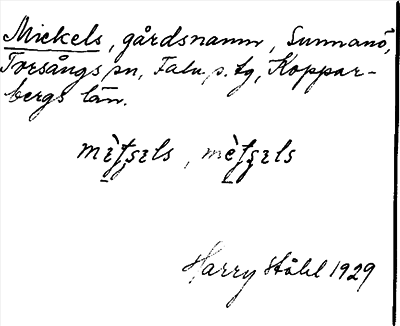 Mickels, gårdsnamn, Sunnanö,
Torsångs sn, Falu p.tg, Koppar-
bergs län.
Harry Ståhl 1929